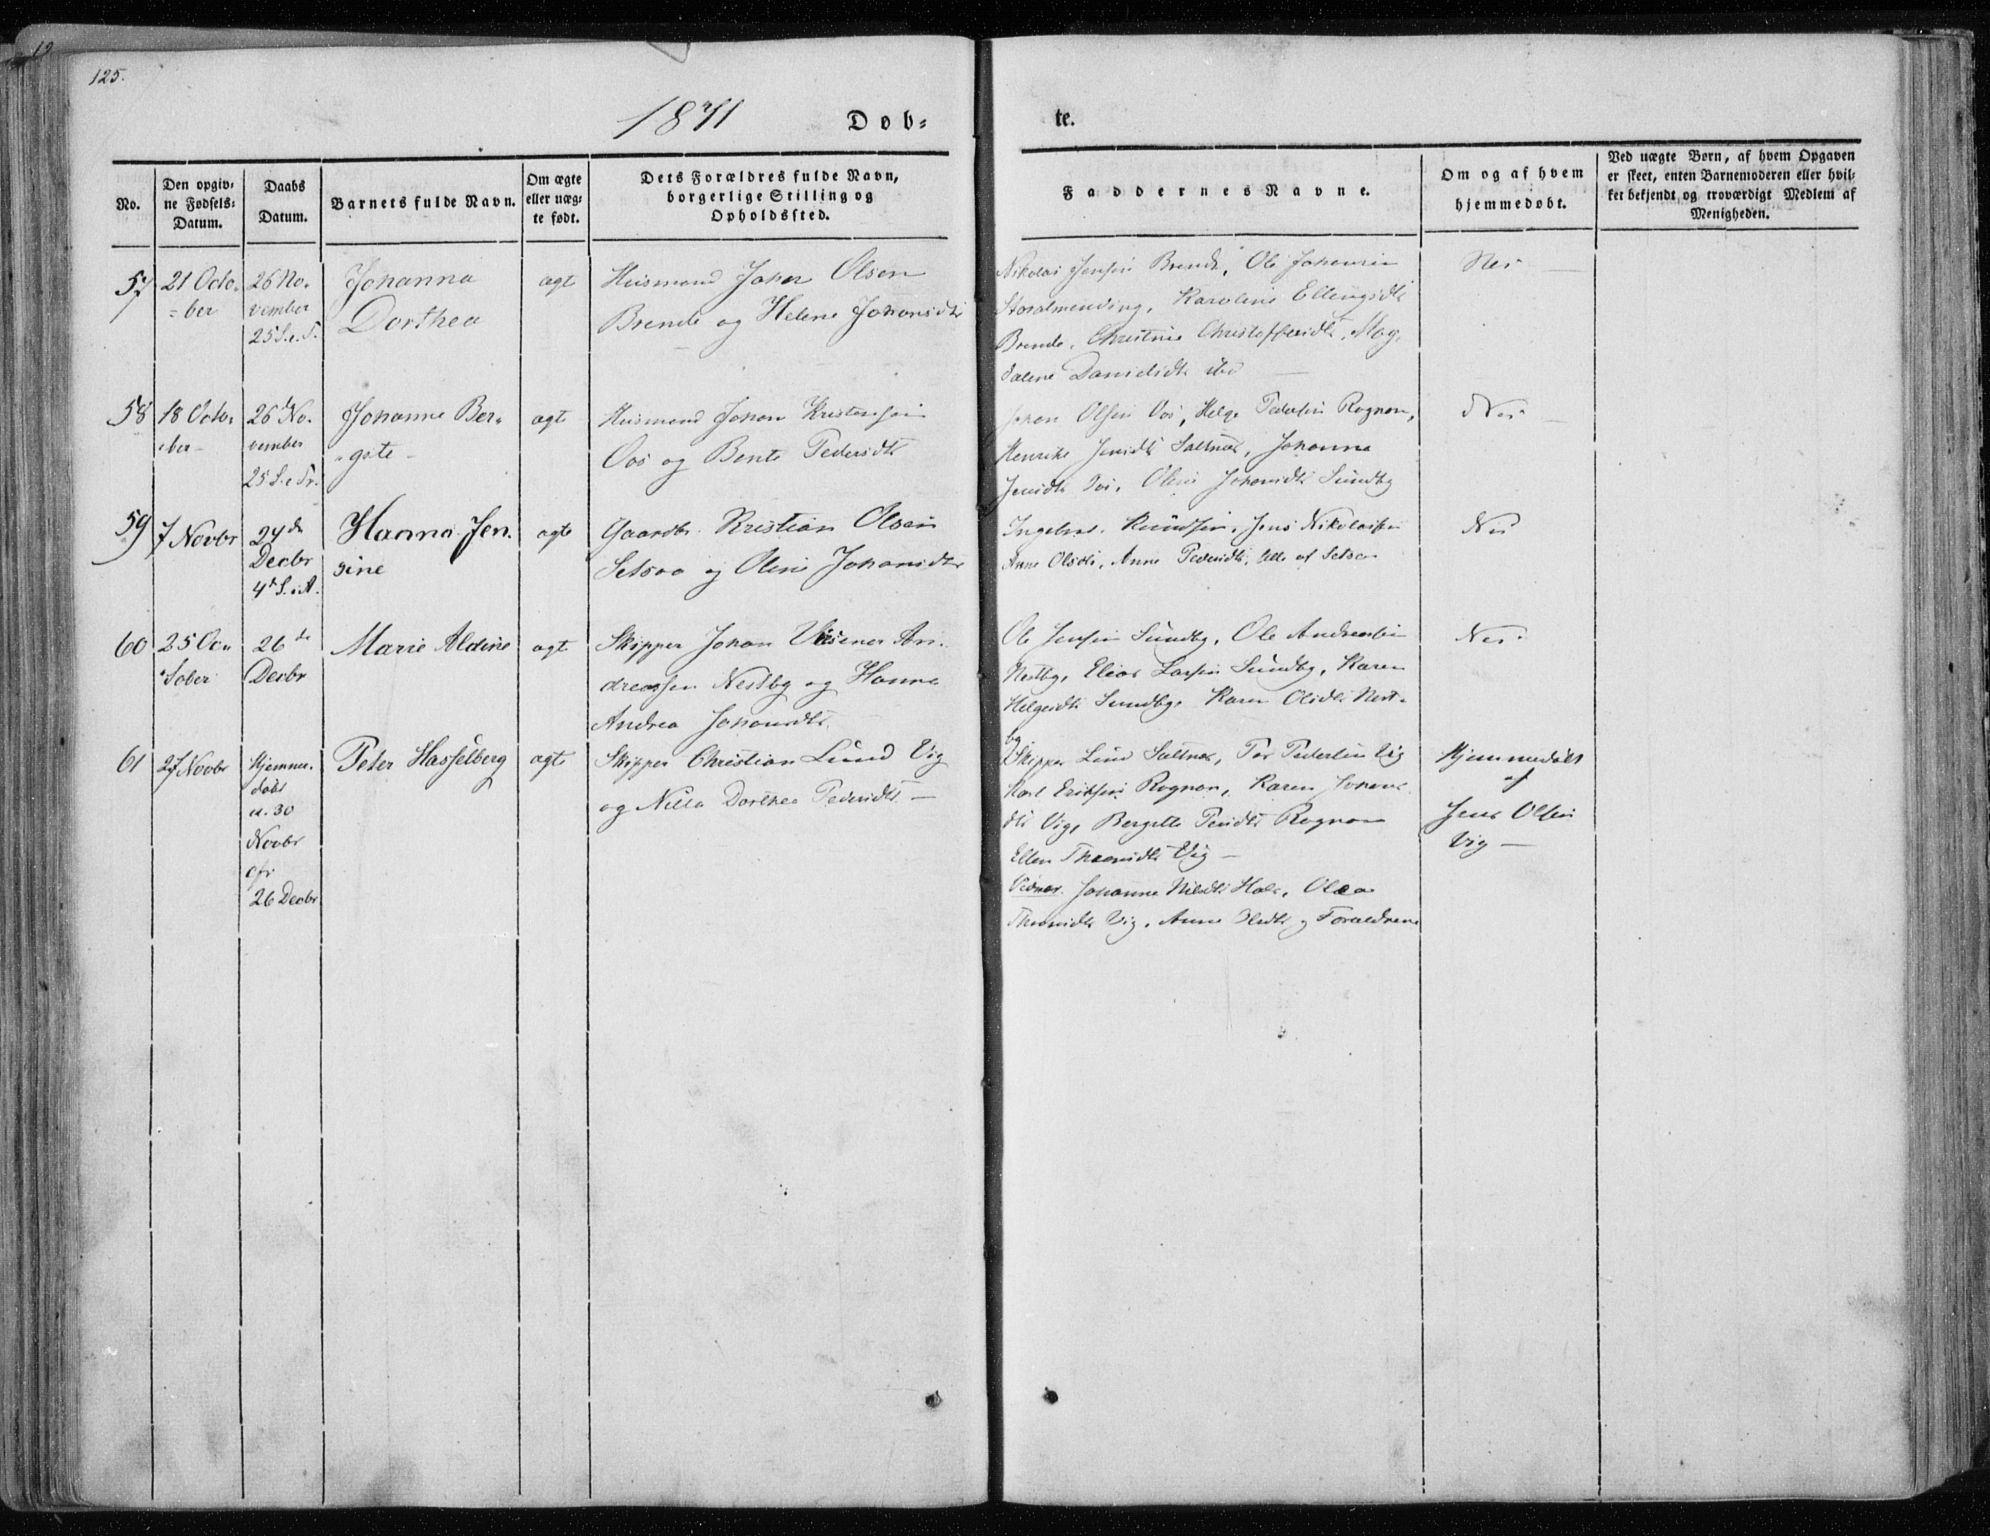 125.
1871
Døb=
te.
No.
Den opgiv=
ne Fødsels=
Datum.
Daabs
Datum.
Barnets fulde Navn.
Om ægte
eller uæg=
te født.
Dets Forældres fulde Navn,
borgerlige Stilling og
Opholdssted.
Faddernes Navne.
Om og af hvem
hjemmedøbt.
Ved uægte Børn, af hvem Opgaven
er skeet, enten Barnemoderen eller hvil=
ket bekjendt og troværdigt Medlem af
Menigheden.
57
21 Octo-
=ber
26 No-
vember
25 S. e. T.
Johanna
Dorthea
ægt
Husmand Johan Olsen
Brende og Helene Johansdtr
Nikolai Jensen Brende, Ole Johansen
Storalmending, Karoline Ellingsdtr
Brende, Christine Christoffersdtr, Mag-
dalene Danielsdtr ibd
Nei
58
18 Octo-
ber
26 No-
vember
25 S. e. Tr.
Johanne Ber-
gste
ægte
Husmand Johan Kristensen
Vos og Bente Pedersdtr
Johan Olsen Vos, Helge Pedersen Rognan,
Henrike Jensdtr Saltnes, Johanna
Jensdtr Vos, Oline Johansdtr Sundby
Nei
59
7 Novbr
24de
Decbr
4de S. i A.
Hanna Jen-
sine
ægte
Gaardbr. Kristian Olsen
Setsaa og Oline Johansdtr
Knudsen, Jens Nikolaisen
Anne Olsdtr, Anne Pedersdtr, alle af Setsaa
Nei
60
25 Oc-
tober
26de
Decbr
Marie Aldine
ægt
Skipper Johan An-
dreassen Nestby og Hanna
Andrea Johansdtr
Ole Jensen Sundby, Ole Andreassen
Nestby, Elias Larsen Sundby, Karen
Helgesdtr Sundby, Karen Olsdtr Nest-
by
Nei
61
27 Novbr
Hjemme-
døbt
d. 30
Novbr
cfr
26 Decbr
Peter Hasselberg
ægte
Skipper Christian Lund Vig
og Nilla Dorthea Pedersdtr
Skipper Lund Saltnes, Per Pedersen Vig
Karl Eriksen Rognan, Karen Johans-
dtr Vig, Bergette Rognan
Ellen Vig
Vidner. Johanne Nilsdtr Hals, Olea
Vig, Anne Olsdtr og Forældrene
Hjemmedøbt
af
Jens Olsen
Vig